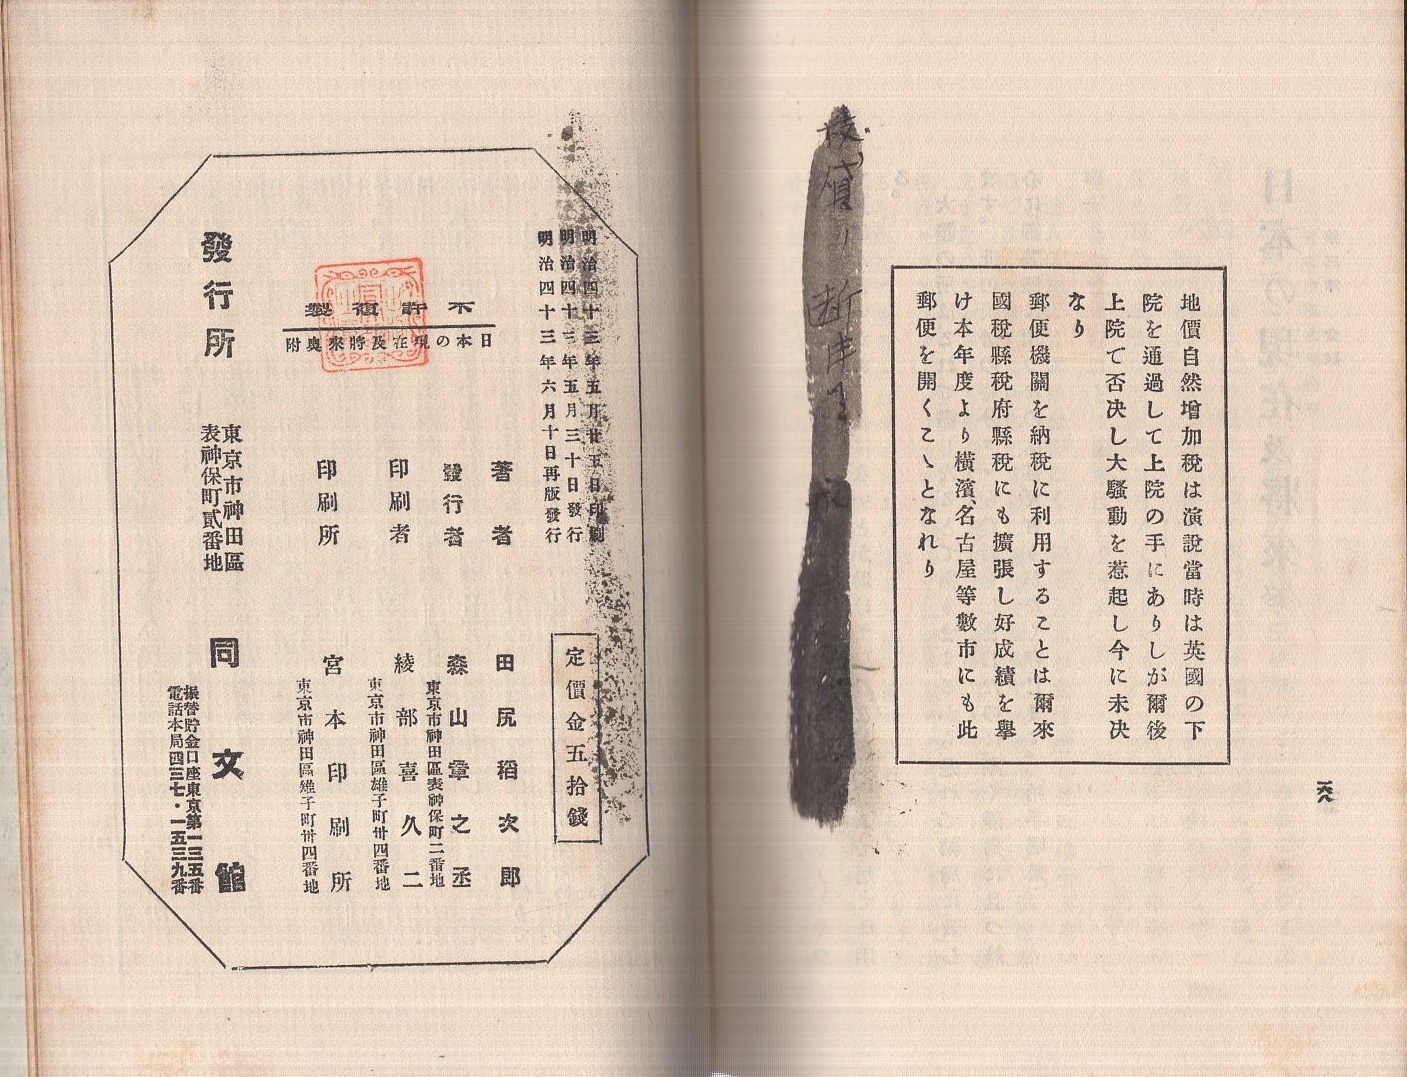 地價自然增加稅は演說當時は英國の下
院を通過して上院の手にありしが爾後
上院で否决し大騷動を惹起し今に未决
なり
郵便機關を納稅に利用することは爾來
國稅縣稅府縣稅にも擴張し好成績を擧
け本年度より橫濱、名古屋等數市にも此
郵便を開くこゝとなれり
一六八
明治四十三年五月廿五日印刷
明治四十三年五月三十日發行
明治四十三年六月十日再版發行
定價金五拾錢
不許複製
日本の現在及將來奧附
著者 田尻稻次郎
發行者 森山章之丞
東京市神田區表神保町二番地
印刷者 綾部喜久二
東京市神田區雉子町卅四番地
印刷所 宮本印刷所
東京市神田區雉子町卅四番地
發行所
東京市神田區
表神保町貳番地
同文館
振替貯金口座東京第一三五番
電話本局四三七・一五三九番